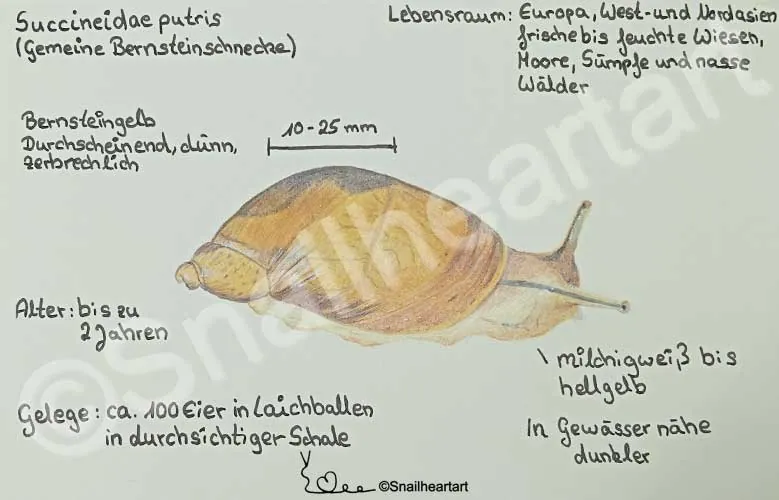 Succineidae putris
(Gemeine Bernsteinschnecke)
Lebensraum: Europa, West- und Nordasien
frische bis feuchte Wiesen,
Moore, Sümpfe und nasse
Wälder
Bernsteingelb
Durchscheinend, dünn,
zerbrechlich
10-25 mm
Alter: bis zu
2 Jahren
milchigweiß bis
hellgelb
Gelege: ca. 100 Eier in Laichballen
in durchsichtiger Schale
In Gewässer nähe
dunkler
©Snailheartart
©Snailheartart